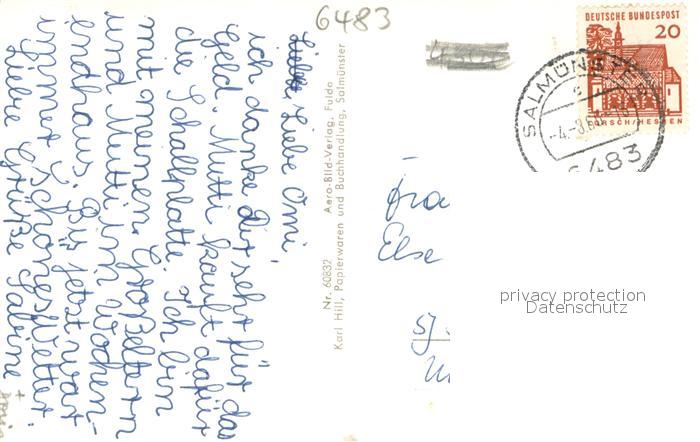 6483
Liebe, Liebe Omi,
ich danke Dir sehr für das
Geld. Mutti kauft dafür
die Schallplatte. Ich bin
mit meinen Großeltern
und Mutti im Wochen-
endhaus. Bis jetzt war
immer schönes Wetter.
Liebe Grüße Sabine
Nr. 60832 Aero-Bild-Verlag, Fulda
Karl Hill, Papierwaren und Buchhandlung, Salmünster
DEUTSCHE BUNDESPOST
20
LORSCH/HESSEN
SALMÜNSTER
c
-4.-8.6
6483
Fra
Else
privacy protection
Datenschutz